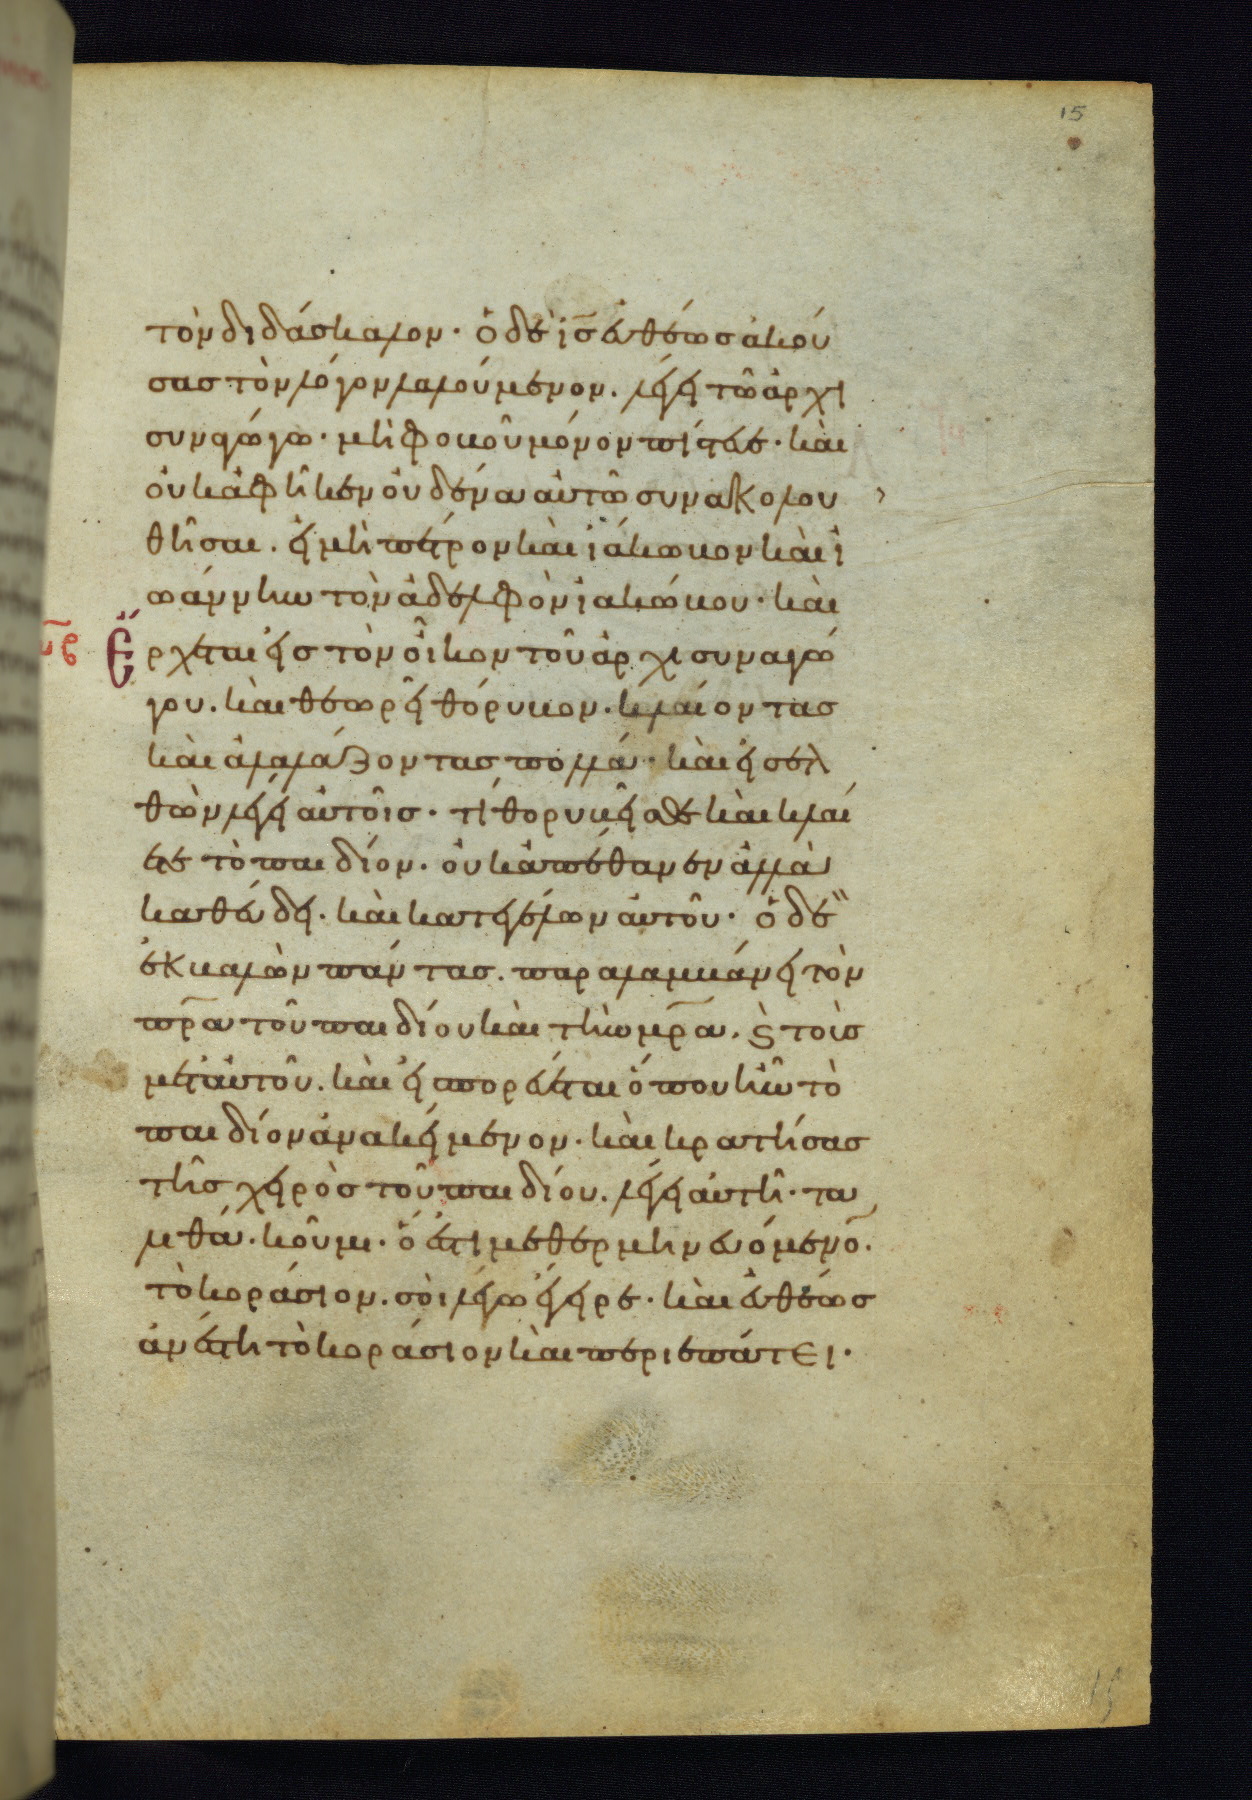 15
τὸν διδάσκαλον· ὁ δὲ ις̅ εὐθέως ἀκού
σας τὸν λόγον λαλούμενον. λέγει τῶ ἀρχι
συναγώγω· μὴ φοβοῦ μόνον πίστευε· καὶ
οὐκ ἀφῆκεν οὐδένα αὐτῶ συνακολου
θῆσαι. εἰ μὴ πέτρον καὶ ϊάκωβον καὶ ϊ
ωάννην τὸν ἀδελφὸν ϊακώβου· καὶ
Ἔρχεται εἰς τὸν οἶκον τοῦ ἀρχισυναγώ
γου. καὶ θεωρεῖ θόρυβον. κλαίοντας
καὶ ἀλαλάζοντας πολλά· καὶ εἰσελ
θὼν λέγει αὐτοῖς· τί θορυβεῖσθε καὶ κλαί
ετε τὸ παιδίον. οὐκ ἀπέθανεν ἀλλὰ
καθεύδει. καὶ κατεγέλων αὐτοῦ· ὁ δὲ
ἐκβαλὼν πάντας. παραλαμβάνει τὸν
πρ̅α τοῦ παιδίου καὶ τὴν μρ̅α. ϗ τοὺς
μετ αὐτοῦ. καὶ εἰσπορεύεται ὅπου ἦν τὸ
παιδίον ἀνακείμενον. καὶ κρατήσας
τῆς χειρὸς τοῦ παιδίου. λέγει αὐτῆ· τα
λιθά· κοῦμι· ὅ ἐστι μεθερμηνευόμενο̅.
τὸ κοράσιον. σοὶ λέγω ἔγειρε· καὶ εὐθέως
ἀνέστη τὸ κοράσιον καὶ περιεπάτει·
15